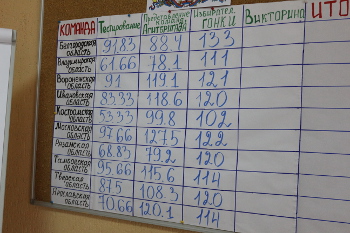 КОМАНДА Тестирование Представление команд Агитбригада Избирател. ГОНКИ Викторина ИТО
Белгородская область 91.83 88.4 133
Владимирская область 61.66 78.1 111
Воронежская область 91 119.1 121
Ивановская область 83.33 118.6 120
Костромская область 53.33 99.8 102
Московская область 97.66 127.5 122
Рязанская область 68.83 79.2 120
Тамбовская область 95.66 115.6 114
Тверская область 87.5 108.3 120
Ярославская область 70.66 120.1 114